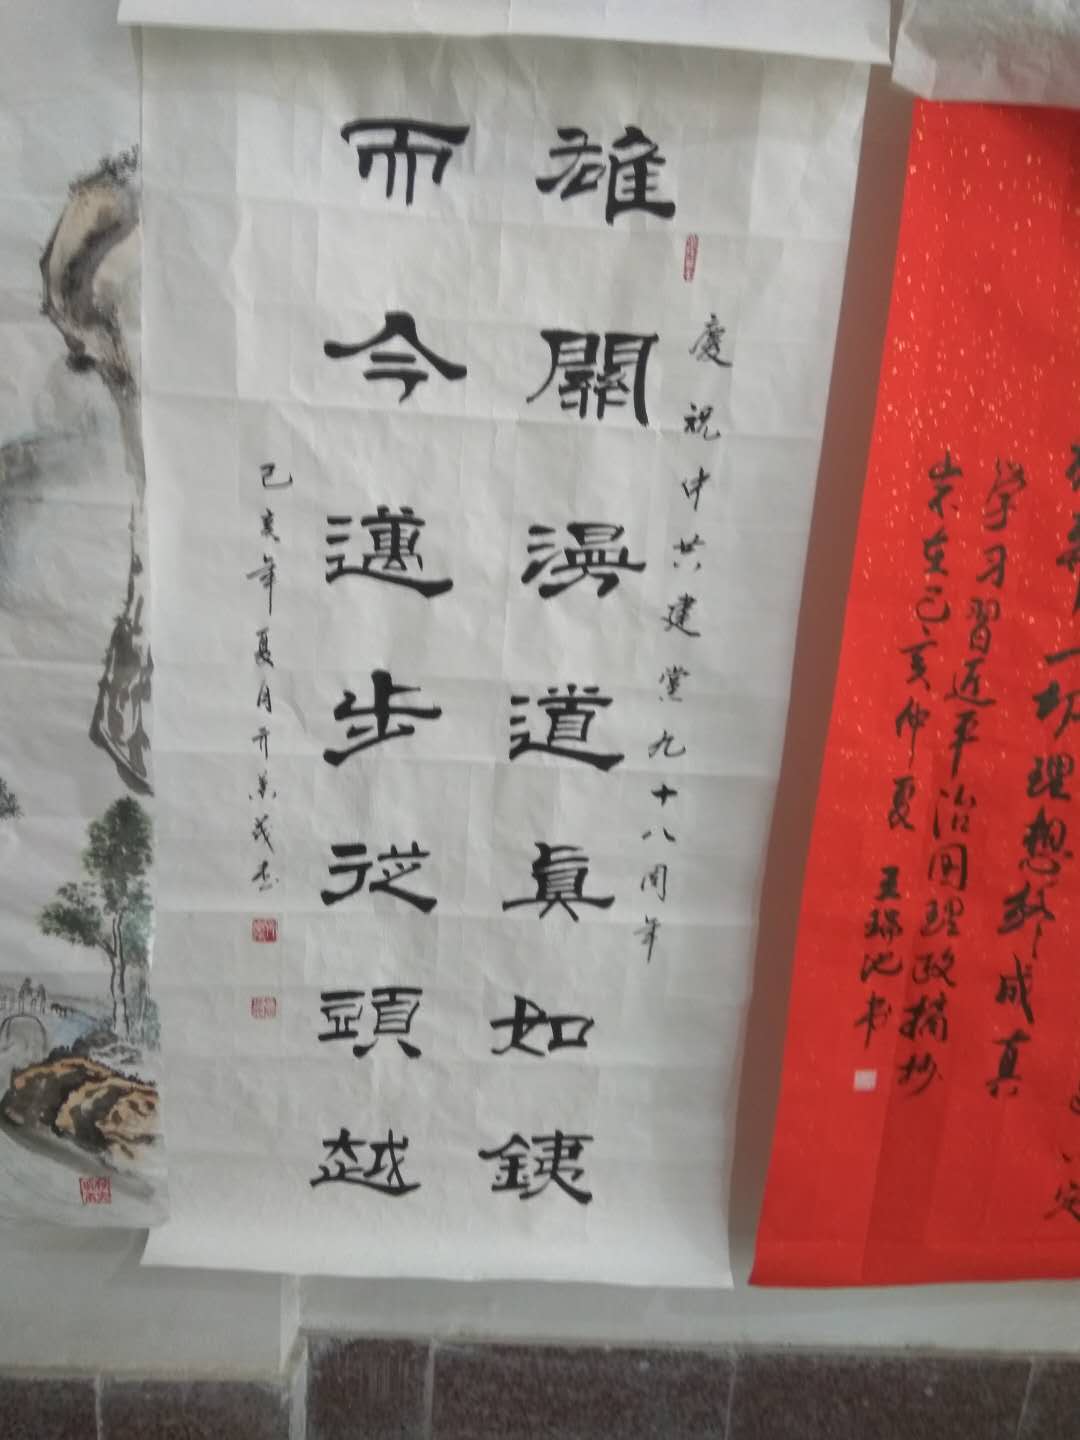 一切理想終成真
学习習近平治国理政摘抄
岁在己亥仲夏 王瑞池书
慶祝中共建黨九十八周年
雄關漫道真如銕
而今邁步從頭越
己亥年夏月